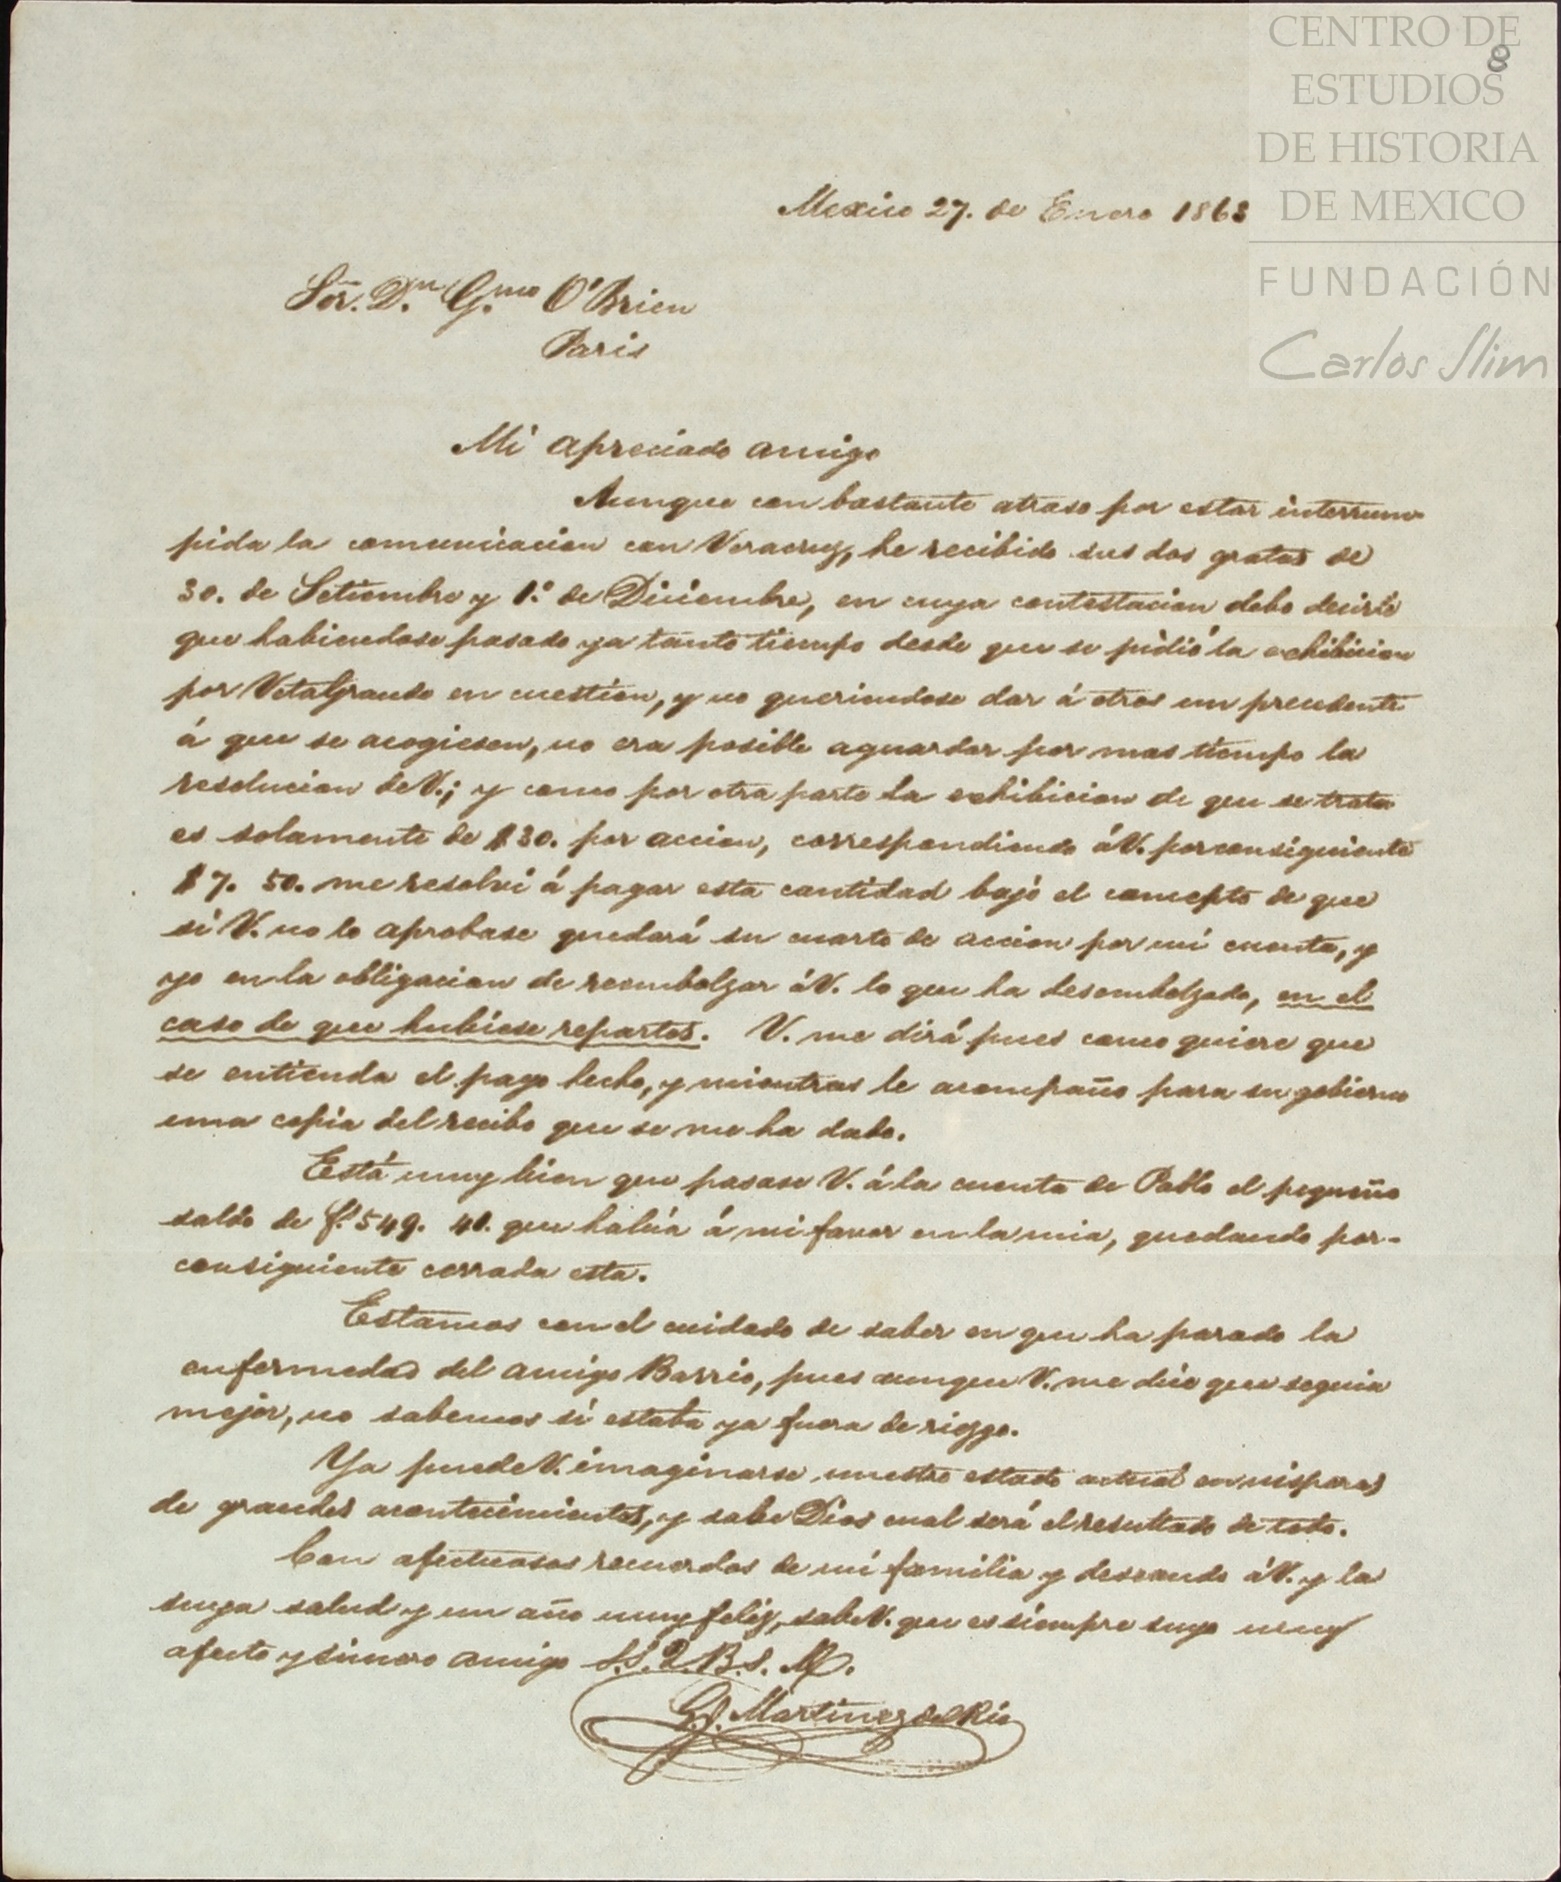 CENTRO DE
ESTUDIOS
DE HISTORIA
DE MEXICO
FUNDACIÓN
Carlos Slim
8
Mexico 27. de Enero 1863
Sor. Dn. Gmo. O'Brien
Paris
Mi apreciado amigo
Aunque con bastante atraso por estar interrum-
pida la comunicacion con Veracruz, he recibido sus dos gratas de
30. de Setiembre y 1.º de Diciembre, en cuya contestacion debo decirle
que habiendose pasado ya tanto tiempo desde que se pidió la exhibicion
por VetaGrande en cuestion, y no queriendose dar á otros un precedente
á que se acogiesen, no era posible aguardar por mas tiempo la
resolucion de V.; y como por otra parte la exhibicion de que se trata
es solamente de $30. por accion, correspondiendo á V. por consiguiente
$7. 50. me resolví á pagar esta cantidad bajo el concepto de que
si V. no lo aprobase quedará su cuarto de accion por mi cuenta, y
yo en la obligacion de reembolzar á V. lo que ha desembolzado, en el
caso de que hubiese repartos. V. me dirá pues como quiere que
se entienda el pago hecho, y mientras le acompaño para su gobierno
una copia del recibo que se me ha dado.
Está muy bien que pasase V. á la cuenta de Pablo el pequeño
saldo de f. 549. 40. que había á mi favor en la mia, quedando por-
consiguiente cerrada esta.
Estamos con el cuidado de saber en que ha parado la
enfermedad del amigo Barrio, pues aunque V. me dice que seguia
mejor, no sabemos si estaba ya fuera de riezgo.
Ya puede V. imaginarse nuestro estado actual en visperas
de grandes acontecimientos, y sabe Dios cual será el resultado de todo.
Con afectuosos recuerdos de mi familia y deseando á V. y la
suya salud y un año muy feliz, sabe V. que es siempre suyo muy
afecto y sincero amigo S.S.Q.B.S.M.
G. Martinez del Rio